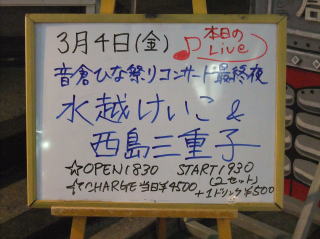 3月4日(金) 本日の
Live
音倉ひな祭りコンサート最終夜
水越けいこ&
西島三重子
☆OPEN1830 START1930
(2セット)
☆CHARGE 当日¥4500
+1ドリンク¥500